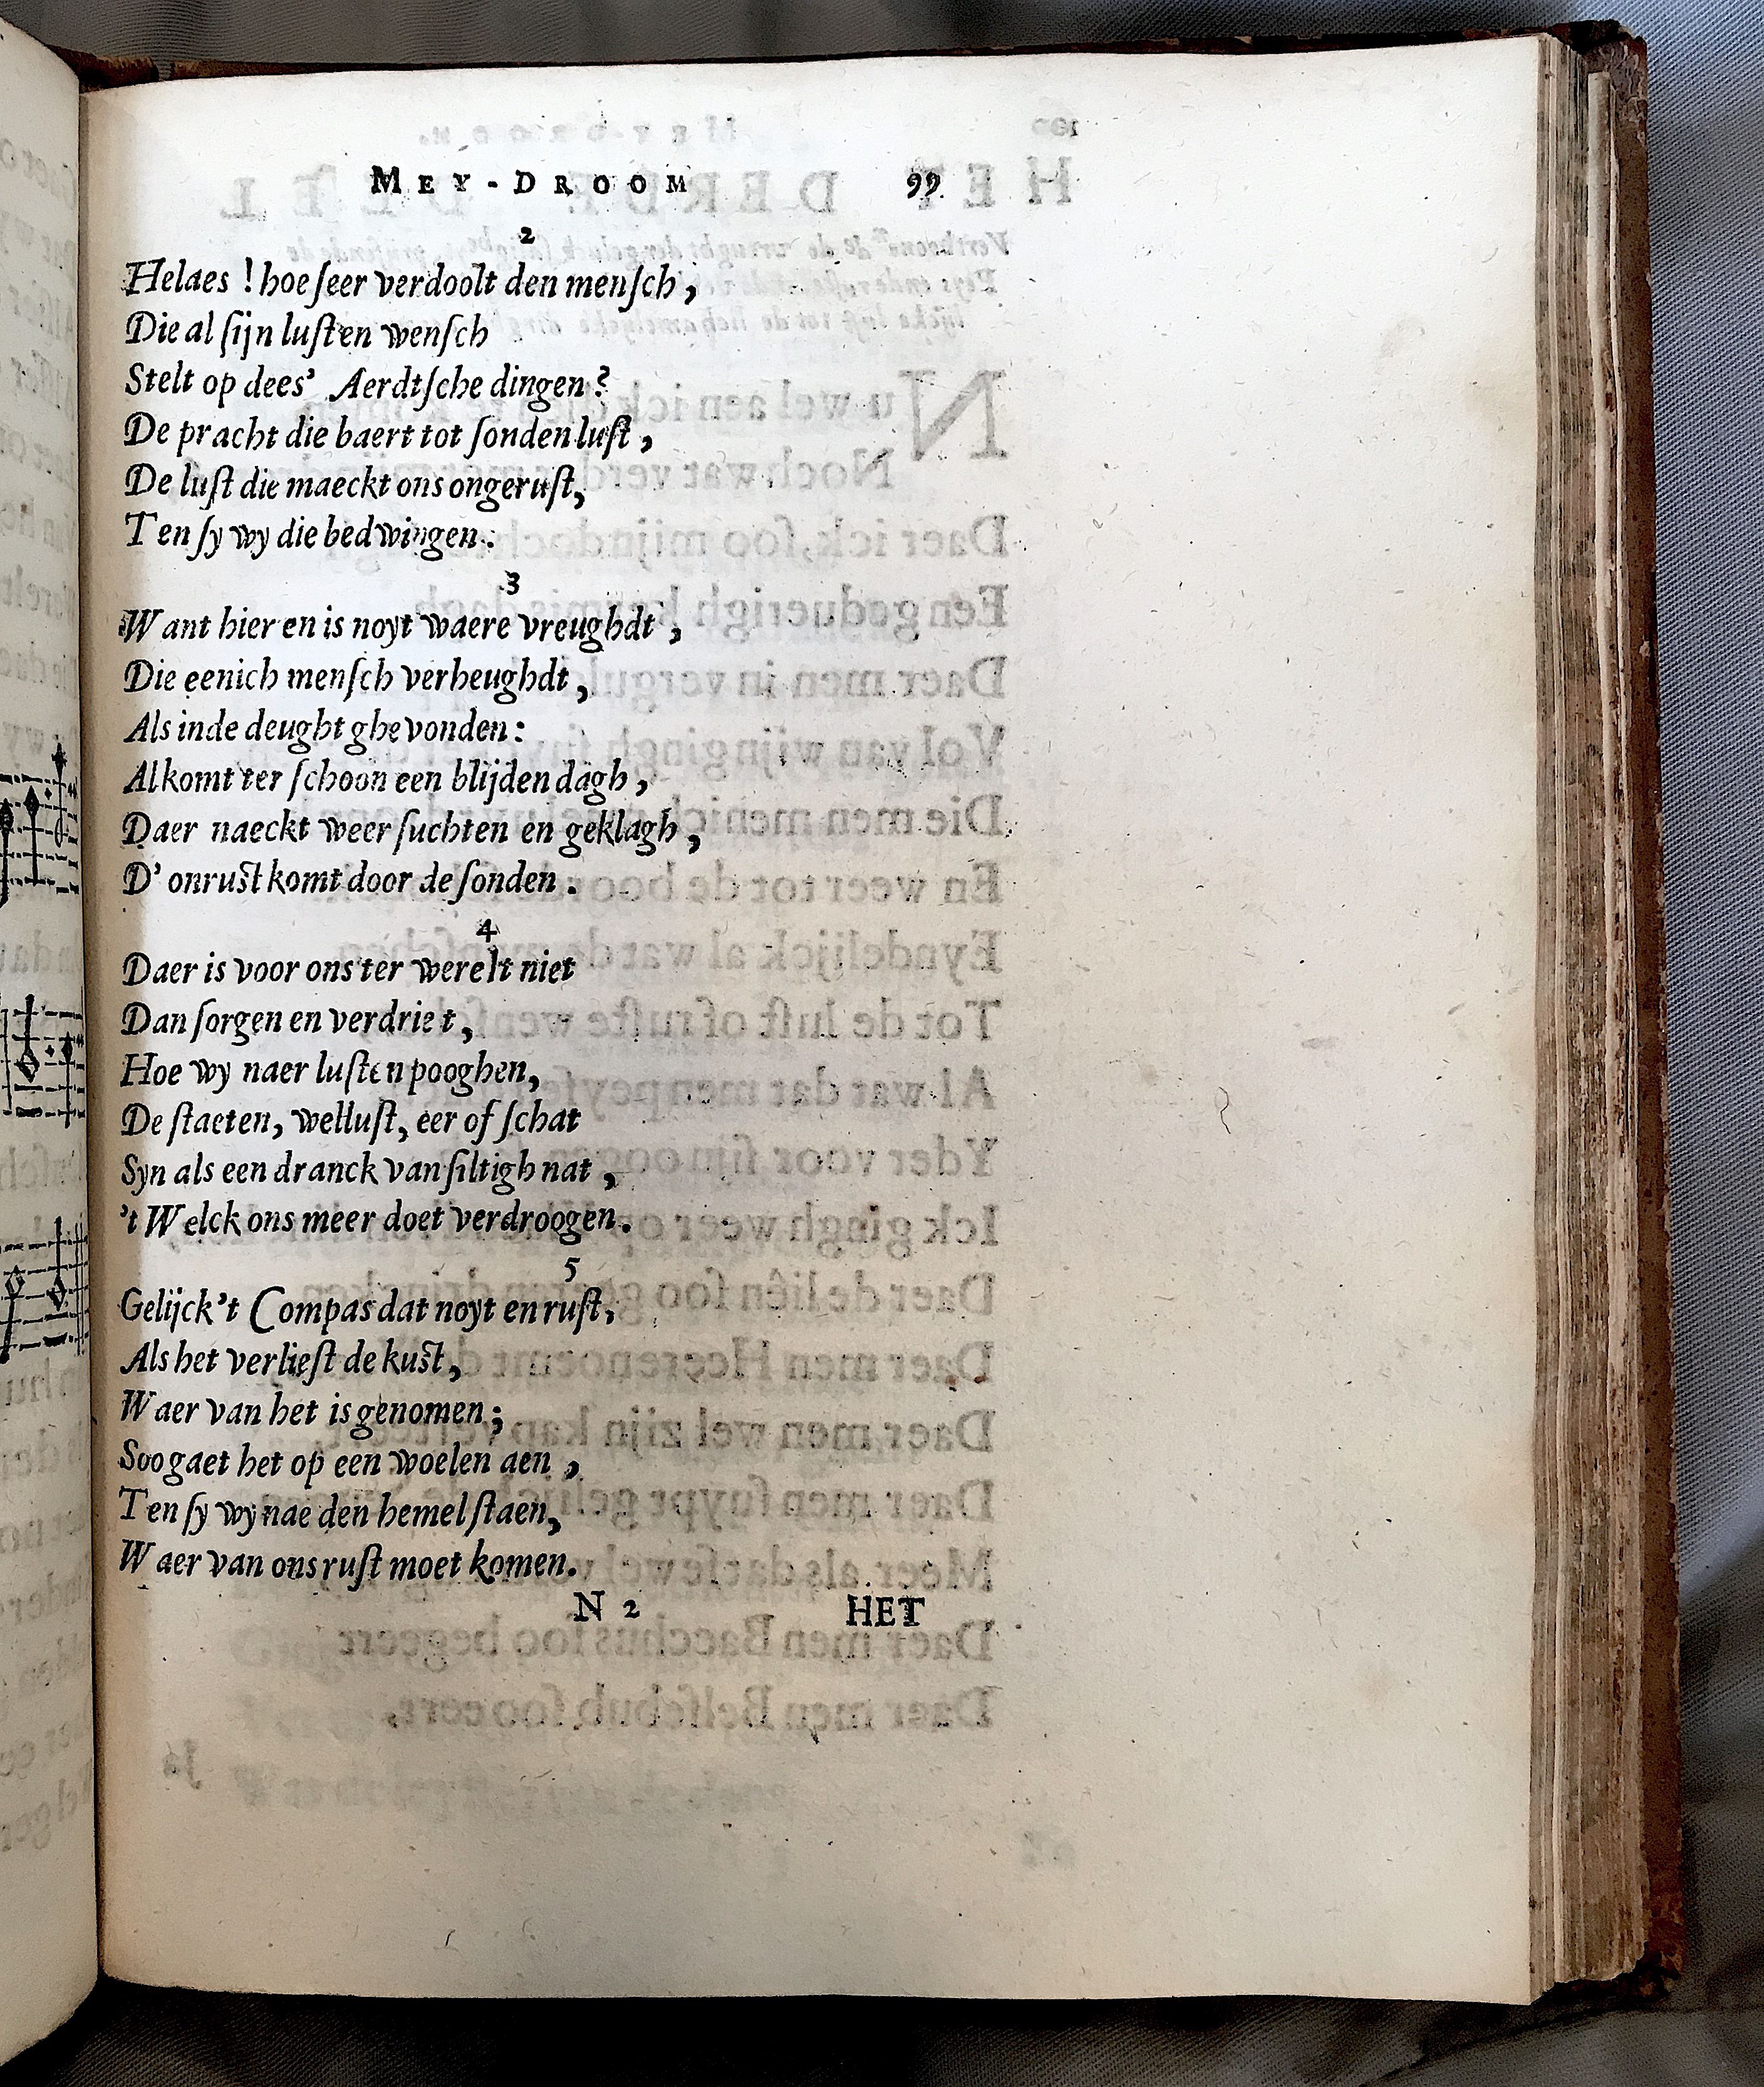 MEY-DROOM 99
2
Helaes ! hoe ſeer verdoolt den menſch,
Die al ſijn luſten wenſch
Stelt op dees' Aerdtſche dingen?
De pracht die baert tot ſonden luſt,
De luſt die maeckt ons ongeruſt,
Ten ſy wy die bedwingen.
3
Want hier en is noyt waere vreughdt,
Die eenich menſch verheughdt,
Als inde deught ghevonden:
Al komt ter ſchoon een blijden dagh,
Daer naeckt weer ſuchten en geklagh,
D' onruſt komt door de ſonden.
4
Daer is voor ons ter werelt niet
Dan ſorgen en verdriet,
Hoe wy naer luſten pooghen,
De ſtaeten, welluſt, eer of ſchat
Syn als een dranck van ſiltigh nat,
't Welck ons meer doet verdroogen.
5
Gelijck 't Compas dat noyt en ruſt,
Als het verlieſt de kuſt,
Waer van het is genomen;
Soo gaet het op een woelen aen,
Ten ſy wy nae den hemel ſtaen,
Waer van ons ruſt moet komen.
N 2 HET